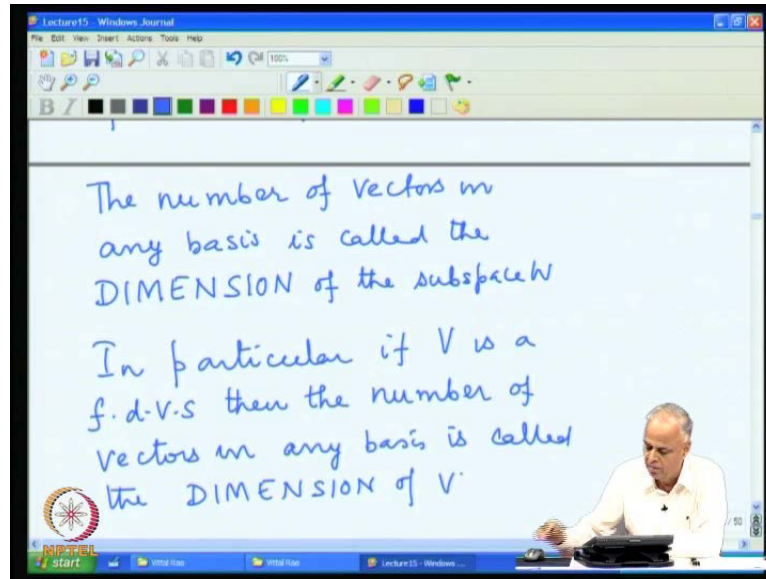 Lecture15 - Windows Journal
File Edit View Insert Actions Tools Help
100%
B I
The number of vectors in
any basis is called the
DIMENSION of the subspace W
In particular if V is a
f.d.V.S then the number of
vectors in any basis is called
the DIMENSION of V
/ 50
NPTEL
start Vittal Rao Vittal Rao Lecture15 - Windows ...